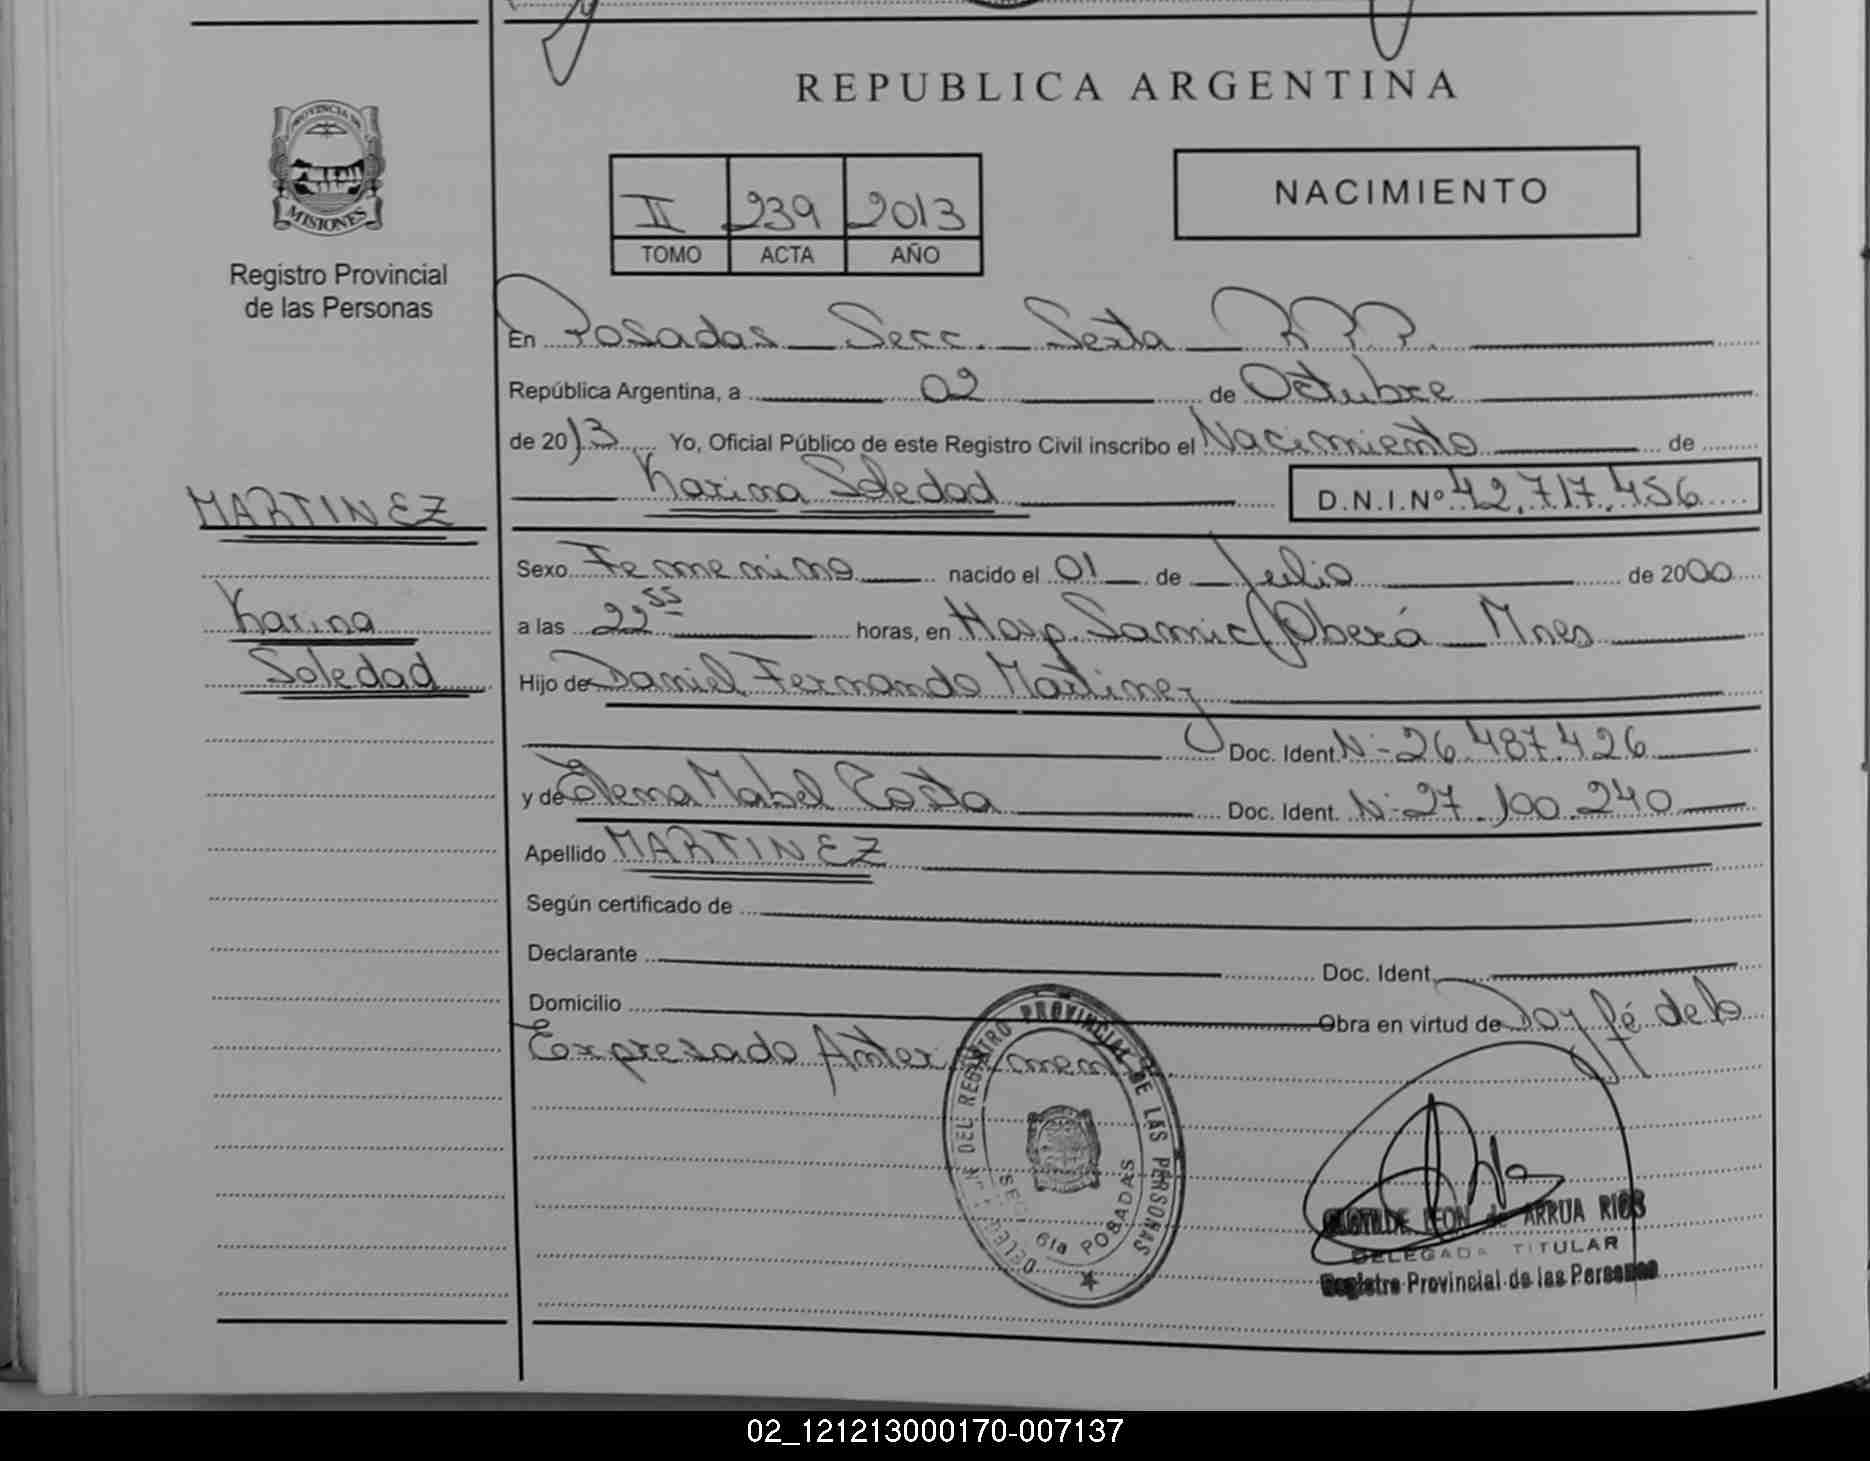 REPUBLICA ARGENTINA
PROVINCIA DE
MISIONES
Registro Provincial
de las Personas
II 239 2013
TOMO ACTA AÑO
NACIMIENTO
En Posadas Secc. Sexta R.P.P.
República Argentina, a 02 de Octubre
de 2013 Yo, Oficial Público de este Registro Civil inscribo el Nacimiento de
Karina Soledad D.N.I.Nº 42.717.456
MARTINEZ
Karina
Soledad
Sexo Femenino nacido el 01 de Julio de 2000
a las 22 55 horas, en Hosp. Samic Oberá Mnes
Hijo de Daniel Fernando Martinez
Doc. Ident. Nº 26.487.426
y de Elena Mabel Costa Doc. Ident. Nº 27.100.240
Apellido MARTINEZ
Según certificado de
Declarante Doc. Ident.
Domicilio Obra en virtud de Doy fé de lo
Expresado
DEL REGISTRO PROVINCIAL DE LAS PERSONAS
SECC 6ta POSADAS
CLOTILDE LEON de ARRUA RIOS
DELEGADA TITULAR
Registro Provincial de las Personas
02_121213000170-007137